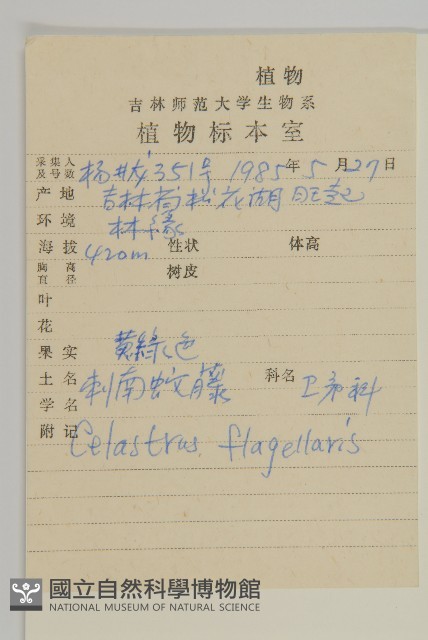 植物
吉林师范大学生物系
植物标本室
采集人及号数 杨 351号 1985年5月27日
产地 吉林省松花湖
环境 林缘
海拔 420m 性状 体高
胸高直径 树皮
叶
花
果实 黄綠色
土名 刺南蛇藤 科名 卫矛科
学名
附记 Celastrus flagellaris
國立自然科學博物館
NATIONAL MUSEUM OF NATURAL SCIENCE